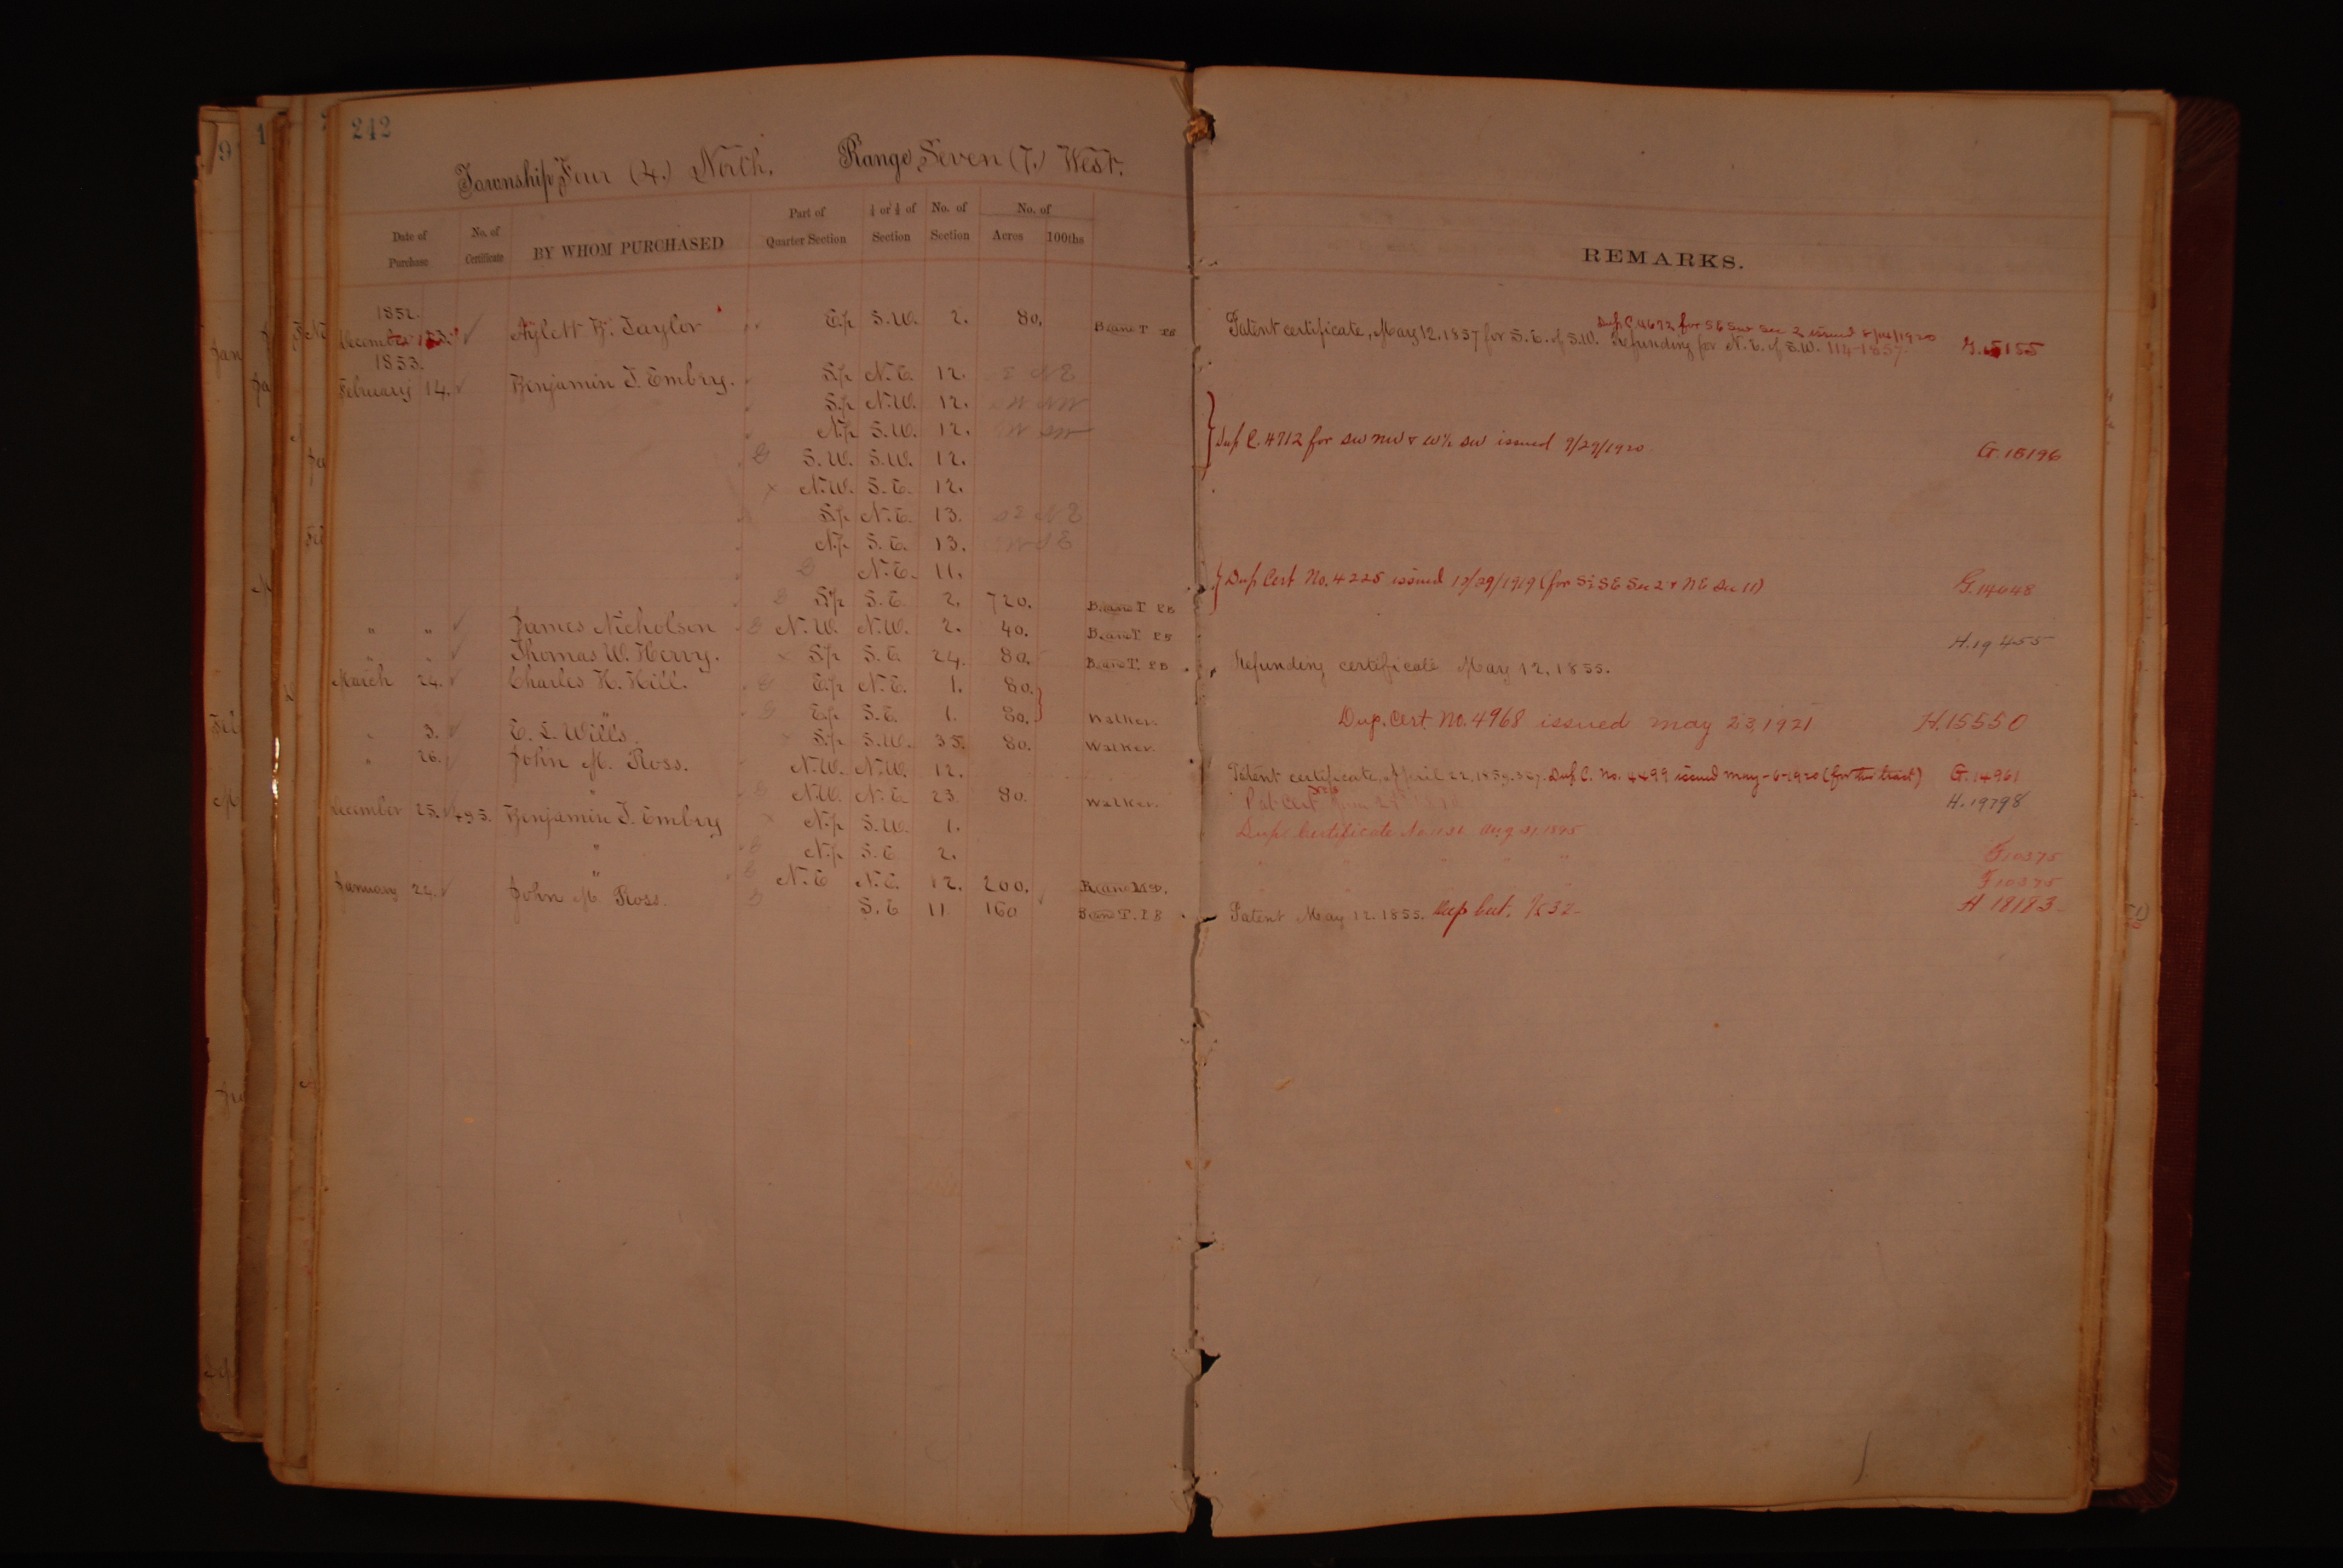 242
Township Four (4.) North. Range Seven (7.) West.
Date of Purchase No. of Certificate BY WHOM PURCHASED Part of Quarter Section ½ or ¼ of Section No. of Section No. of Acres 100ths
REMARKS.
1852.
December Aylett B. Taylor E.½ S.W. 2. 80. Patent certificate, May 12, 1857 for S.E. of S.W. Refunding for N.E. of S.W.
Dup. C. 4672 for SE SW Sec 2 issued 8/14/1920
1853.
February 14. Benjamin T. Embry. S.½ N.E. 12.
S.½ N.W. 12.
N.½ S.W. 12. Dup C. 4712 for SW NW & W½ SW issued 9/29/1920 G. 15196
S.W. S.W. 12.
N.W. S.E. 12.
S.½ N.E. 13.
N.½ S.E. 13.
N.E. 11. Dup Cert No. 4225 issued 12/29/1919 (for S½ SE Sec 2 & NE Sec 11) G. 14048
S.½ S.E. 2. 720.
" " James Nicholson N.W. N.W. 2. 40. H. 19455
" " Thomas W. Hervy. S.½ S.E. 24. 80. Refunding certificate May 12, 1855.
March 24. Charles H. Hill. E.½ N.E. 1. 80.
E.½ S.E. 1. 80. Walker. Dup. Cert. No. 4968 issued May 23, 1921 H. 15550
" 3. E. L. Wills. S.½ S.W. 35. 80. Walker.
" 26. John M. Ross. N.W. N.W. 12. Patent certificate, April 22, 1859. Dup. C. No. 4499 issued May-6-1920 (for this tract) G. 14961
" N.W. N.E. 23. 80. Walker. Pat. Cert H. 19798
December 25. 495. Benjamin T. Embry N.½ S.W. 1. Dup. Certificate No. 131 Aug 31, 1895
" N.½ S.E. 2. " " " " F 10375
" N.E. N.E. 12. 200. F 10375
January 24. John M. Ross. S.E. 11 160 Patent May 12. 1855. Dup Cert. H 18183